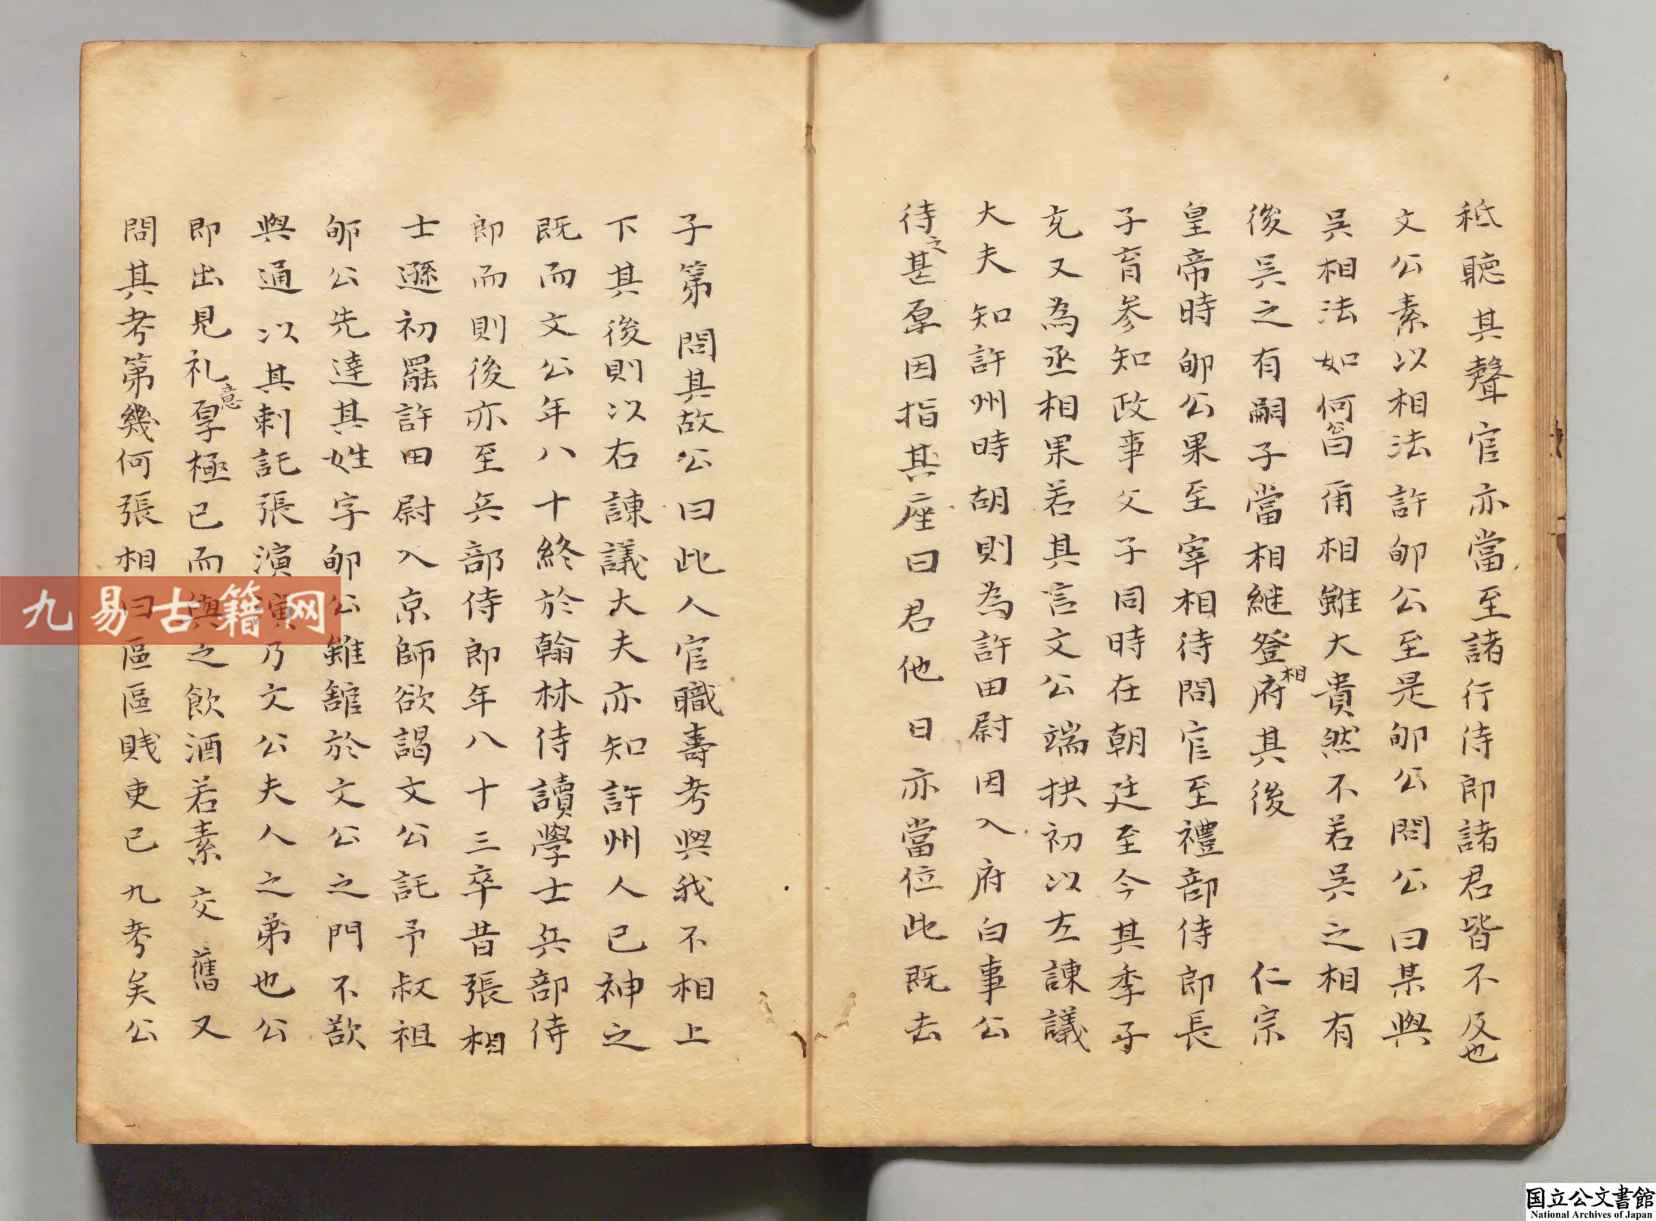 秪聽其聲官亦當至諸行侍郎諸君皆不及也
文公素以相法許郇公至是郇公問公曰某與
吳相法如何答曰甬相雖大貴然不若吳之相有
後吳之有嗣子當相継登相府其後 仁宗
皇帝時郇公果至宰相待問官至禮部侍郎長
子育參知政事父子同時在朝廷至今其季子
充又為丞相果若其言文公端拱初以左諫議
大夫知許州時胡則為許田尉因入府白事公
待之甚厚因指其座曰君他日亦當位此既去
子第問其故公曰此人官職壽考與我不相上
下其後則以右諫議大夫亦知許州人已神之
既而文公年八十終於翰林侍讀學士兵部侍
郎而則後亦至兵部侍郎年八十三卒昔張相
士遜初罷許田尉入京師欲謁文公託予叔祖
郇公先達其姓字郇公雖舘於文公之門不欲
與通以其刺託張演演乃文公夫人之弟也公
即出見礼意厚極已而與之飲酒若素交舊又
問其考第幾何張相曰區區賎吏已九考矣公
九易古籍网
国立公文書館
National Archives of Japan